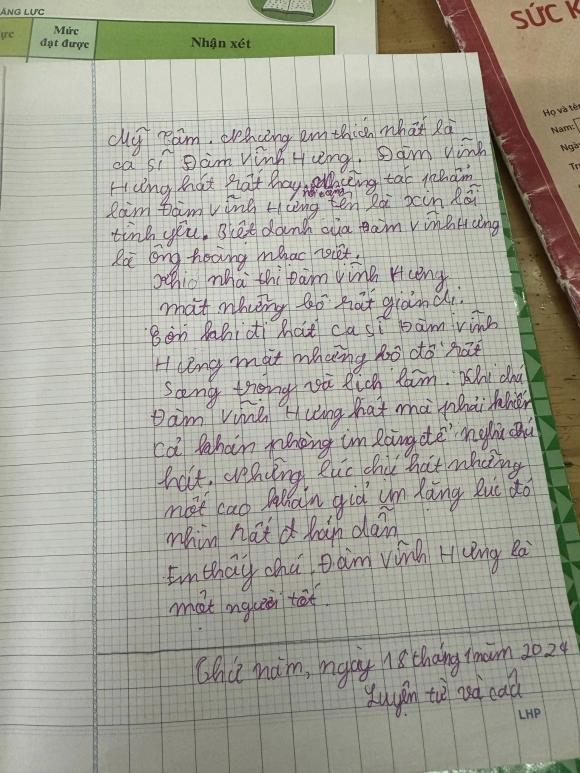 ĂNG LỰC
ực
Mức
đạt được
Nhận xét
SỨC K
Họ và tê
Nam:
Ngà
Tr
Mỹ Tâm. Nhưng em thích nhất là
ca sĩ Đàm Vĩnh Hưng. Đàm Vĩnh
Hưng hát rất hay, những tác phẩm
nổi tiếng
làm Đàm Vĩnh Hưng tên là xin lỗi
tình yêu. Biệt danh của Đàm Vĩnh Hưng
là ông hoàng nhạc việt.
Khi nhà thì Đàm Vĩnh Hưng
mặt những bộ rất giản di.
Còn khi đi hát ca sĩ Đàm Vĩnh
Hưng mặt những bộ đồ rất
sang trọng và lịch lãm. Khi chú
Đàm Vĩnh Hưng hát mà phải khiến
cả khán phòng im lặng để nghe chú
hát. Những lúc chú hát những
nốt cao khán giả im lặng lúc đó
nhìn rất hấp dẫn
Em thấy chú Đàm Vĩnh Hưng là
một người tốt.
Thứ năm, ngày 18 tháng 1 năm 2024
Luyện từ và câu
LHP